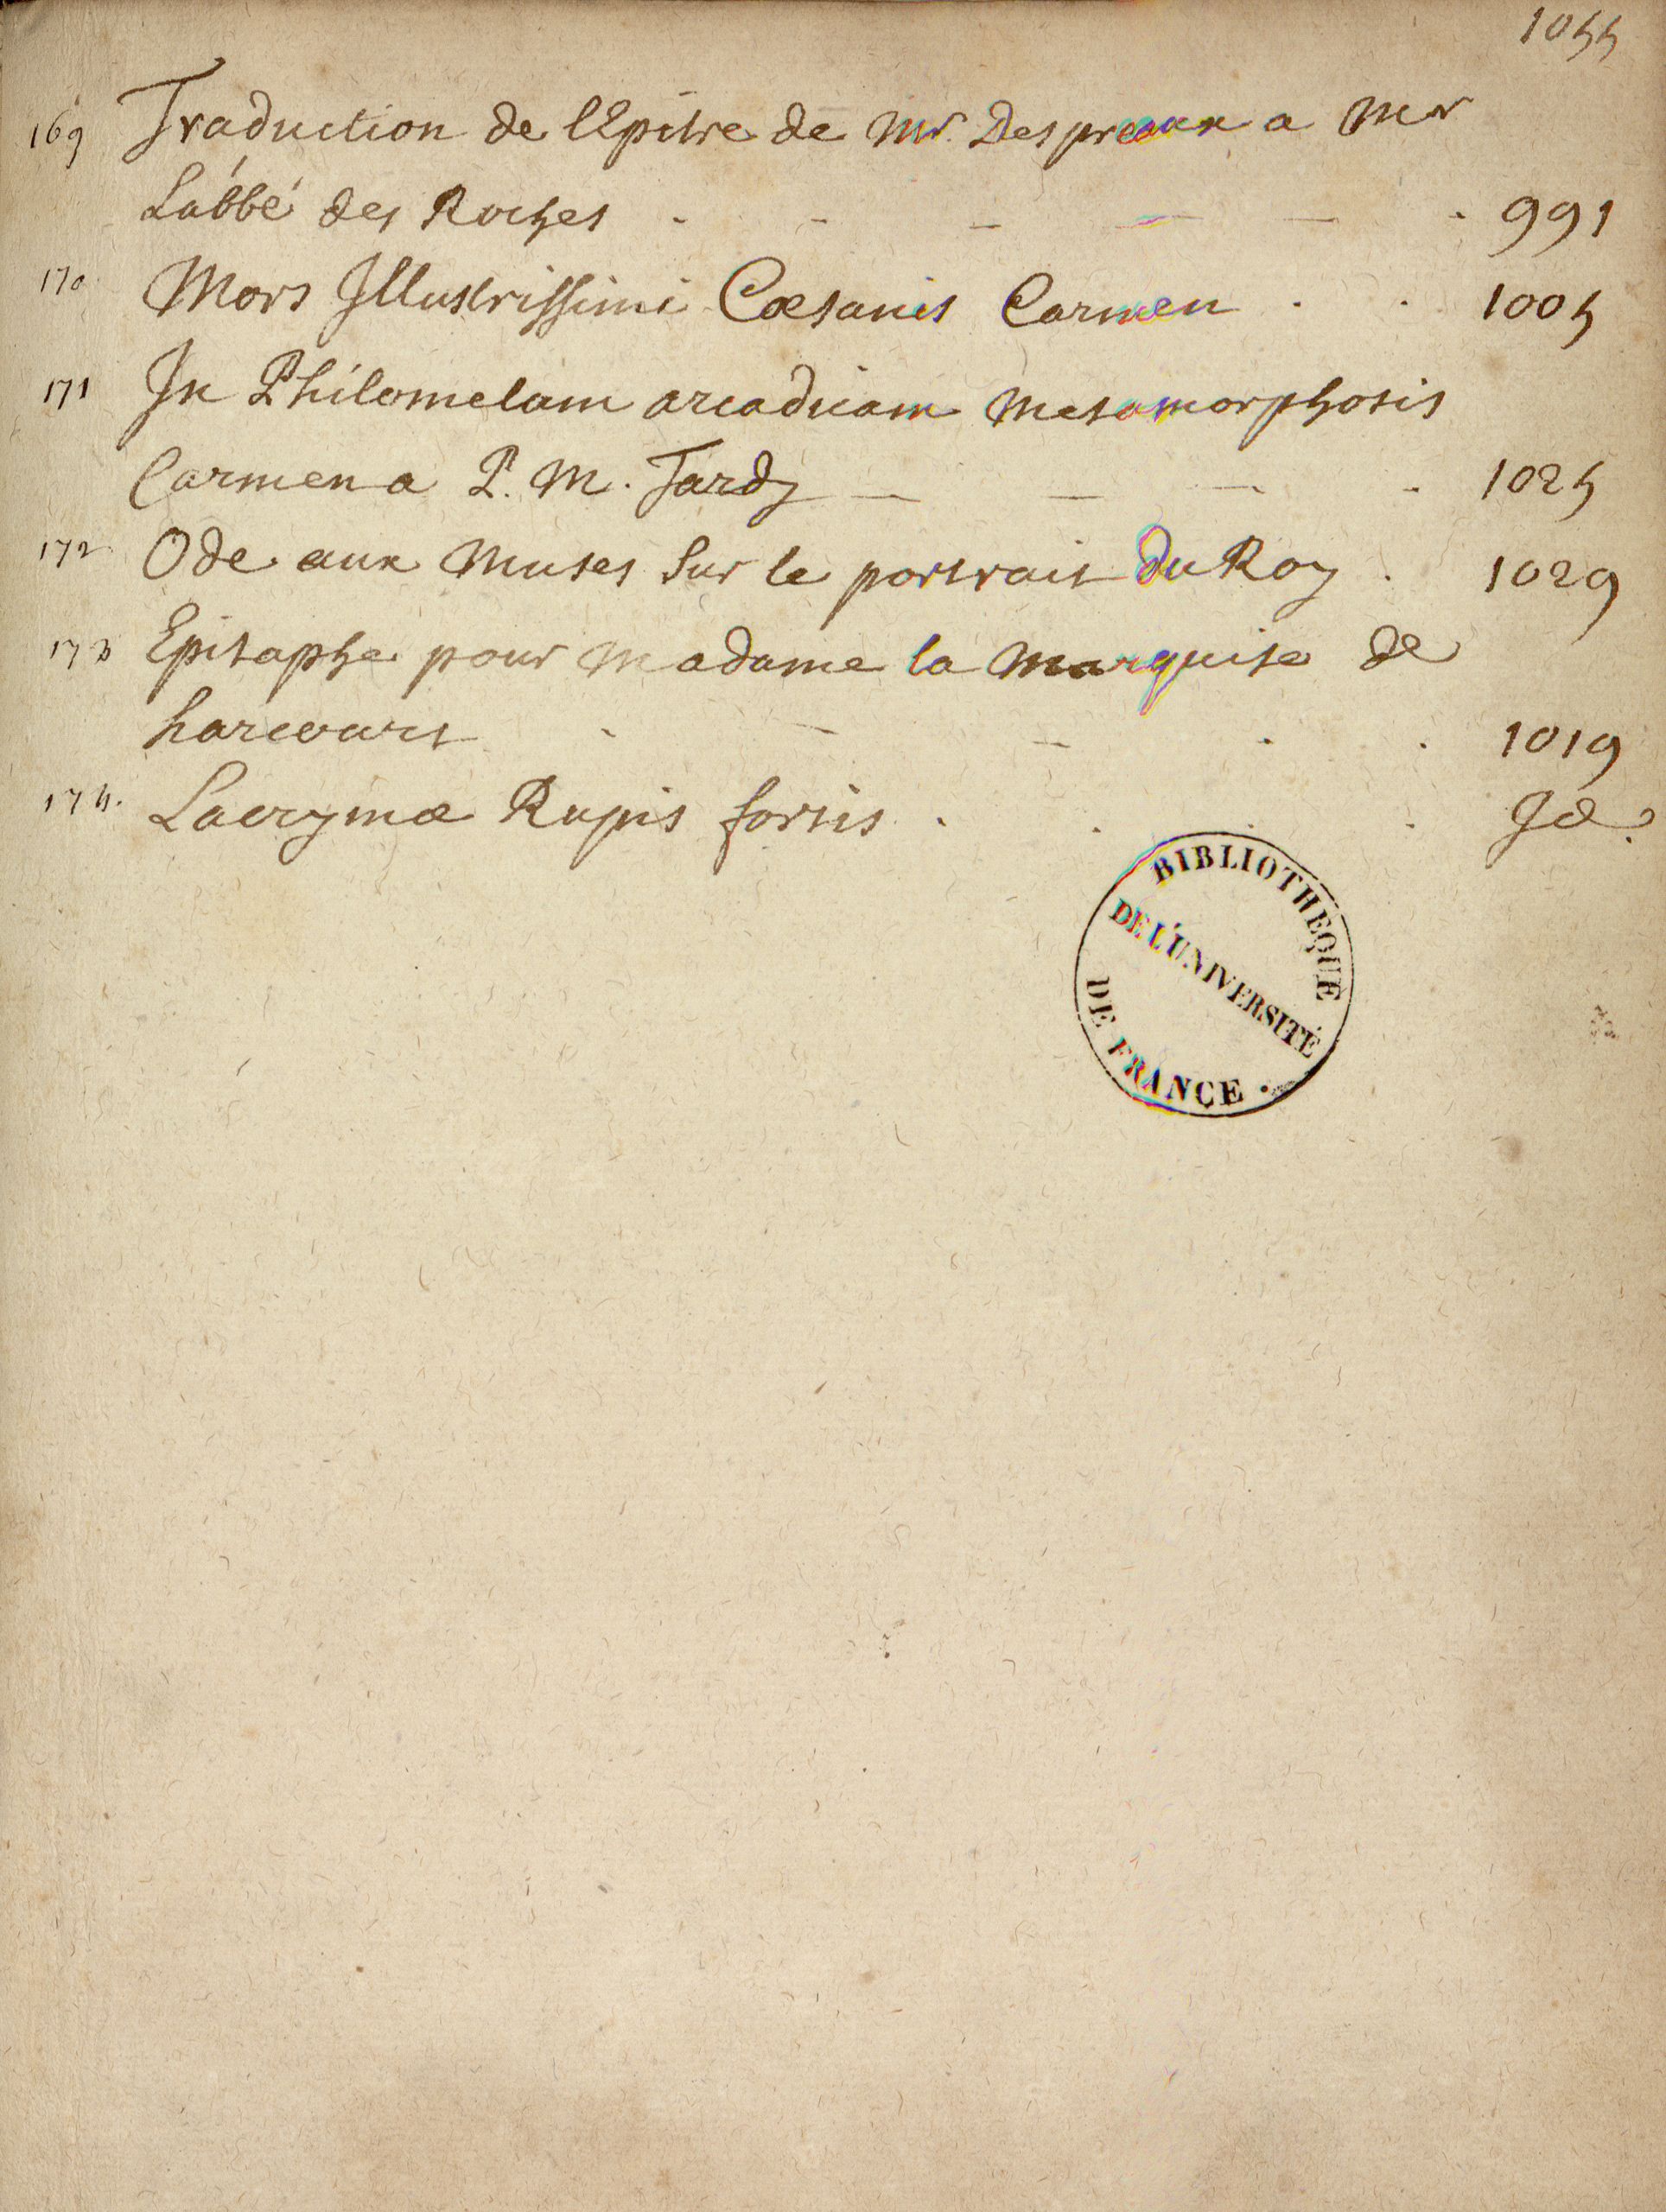 1055
169 Traduction de lEpitre de Mr. Despreaux a Mr
Labbé des Roches . - - - - . 991
170 Mors Illustrissimi Coesaris Carmen . . 1005
171 In Philomelam arcadicam metamorphosis
Carmen a P. M. Tardy - - - . 1025
172 Ode aux Muses sur le portrait du Roy . 1029
173 Epitaphe pour Madame la Marquise de
harcourt . - - . . 1019
174. Lacrymæ Rupis fortis . . . . Id.
BIBLIOTHÈQUE
DE L'UNIVERSITÉ
DE FRANCE .